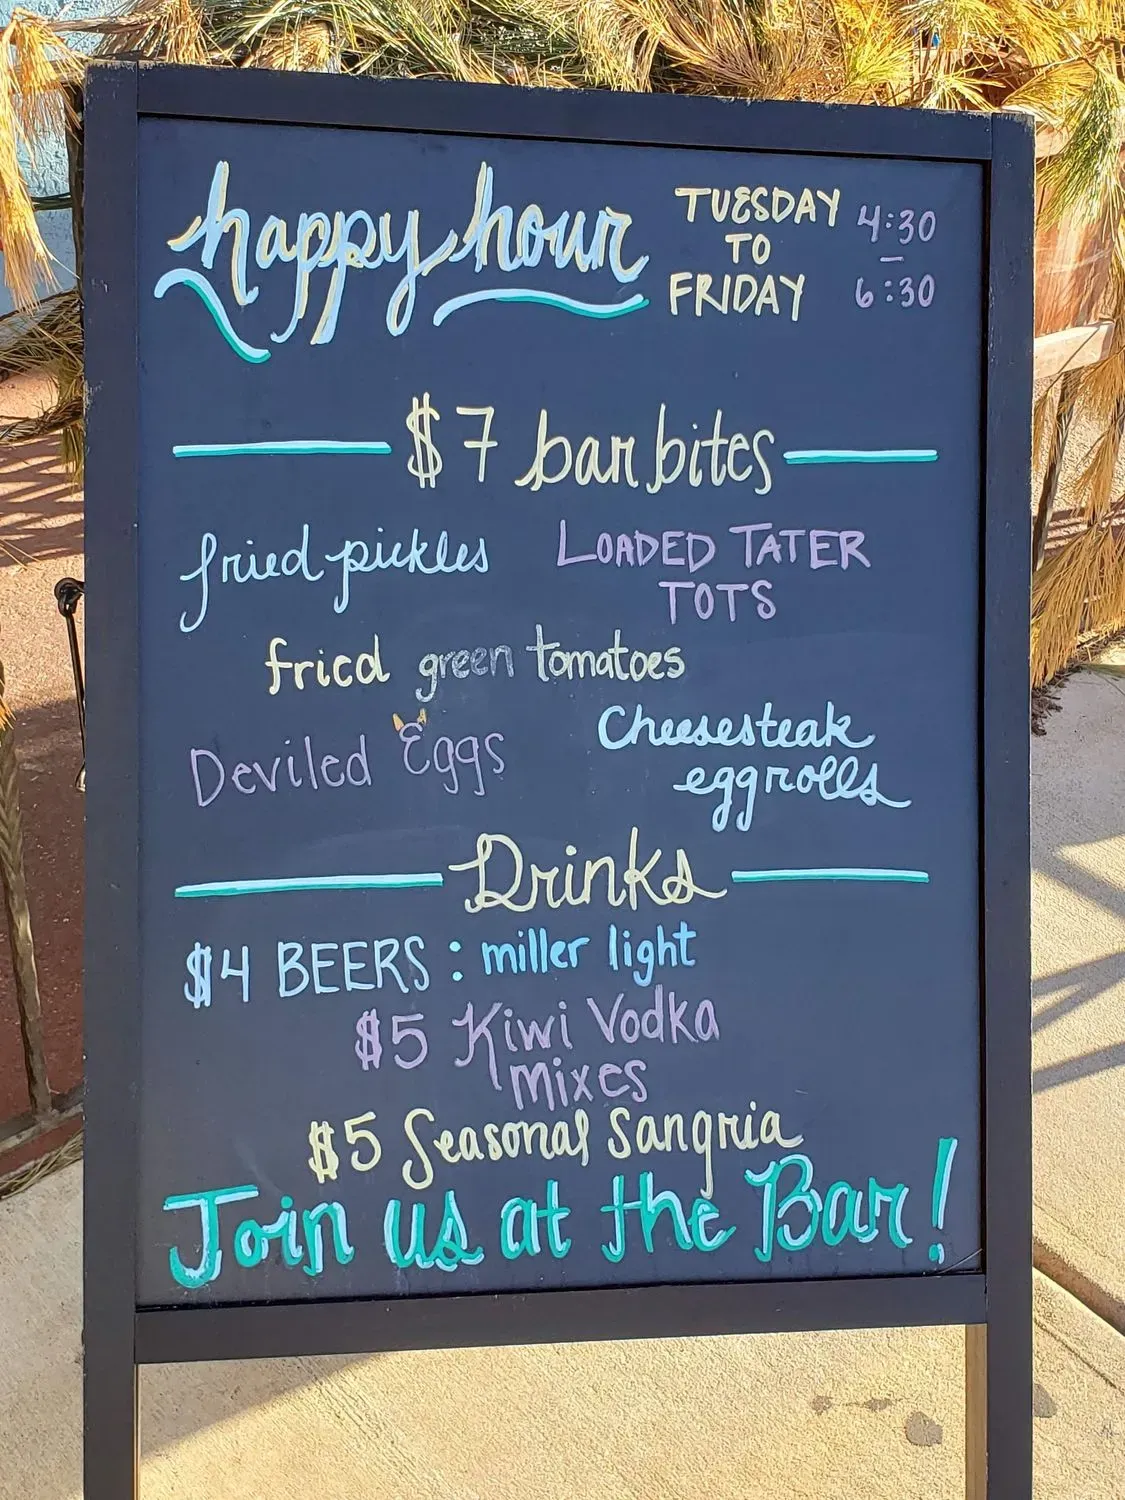 happy hour
TUESDAY
TO
FRIDAY
4:30
–
6:30
$7 bar bites
fried pickles
LOADED TATER
TOTS
fried green tomatoes
Deviled Eggs
Cheesesteak
eggrolls
Drinks
$4 BEERS: miller light
$5 Kiwi Vodka
mixes
$5 Seasonal Sangria
Join us at the Bar!